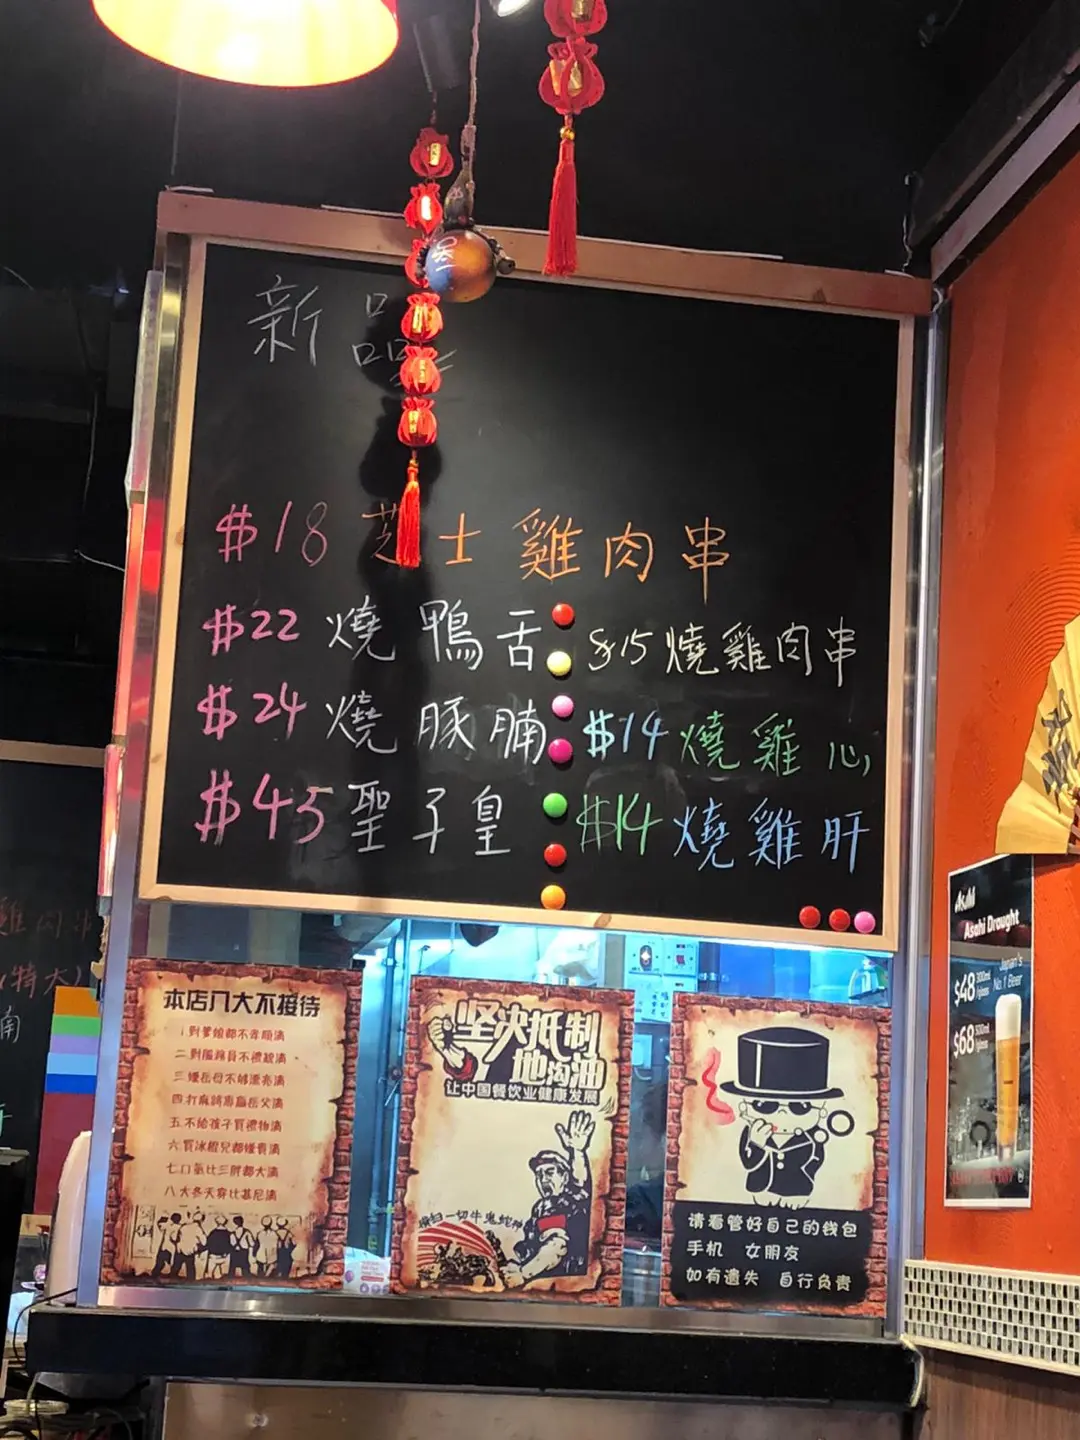 新品
$18 芝士雞肉串
$22 燒鴨舌
$15 燒雞肉串
$24 燒豚腩
$14 燒雞心
$45 聖子皇
$14 燒雞肝
本店八大不接待
一對爹娘都不孝順滴
二對服務員不禮貌滴
三嫌岳母不够漂亮滴
四打麻將專贏岳父滴
五不給孩子買禮物滴
六買冰棍兒都嫌貴滴
七口氣比三胖都大滴
八大冬天穿比基尼滴
坚决抵制
地沟油
让中国餐饮业健康发展
横扫一切牛鬼蛇神
请看管好自己的钱包
手机 女朋友
如有遗失 自行负责
Asahi
Asahi Draught
Japan's
No.1 Beer
$48 300ml
/glass
$68 500ml
/glass
雞肉串
(特大)
腩